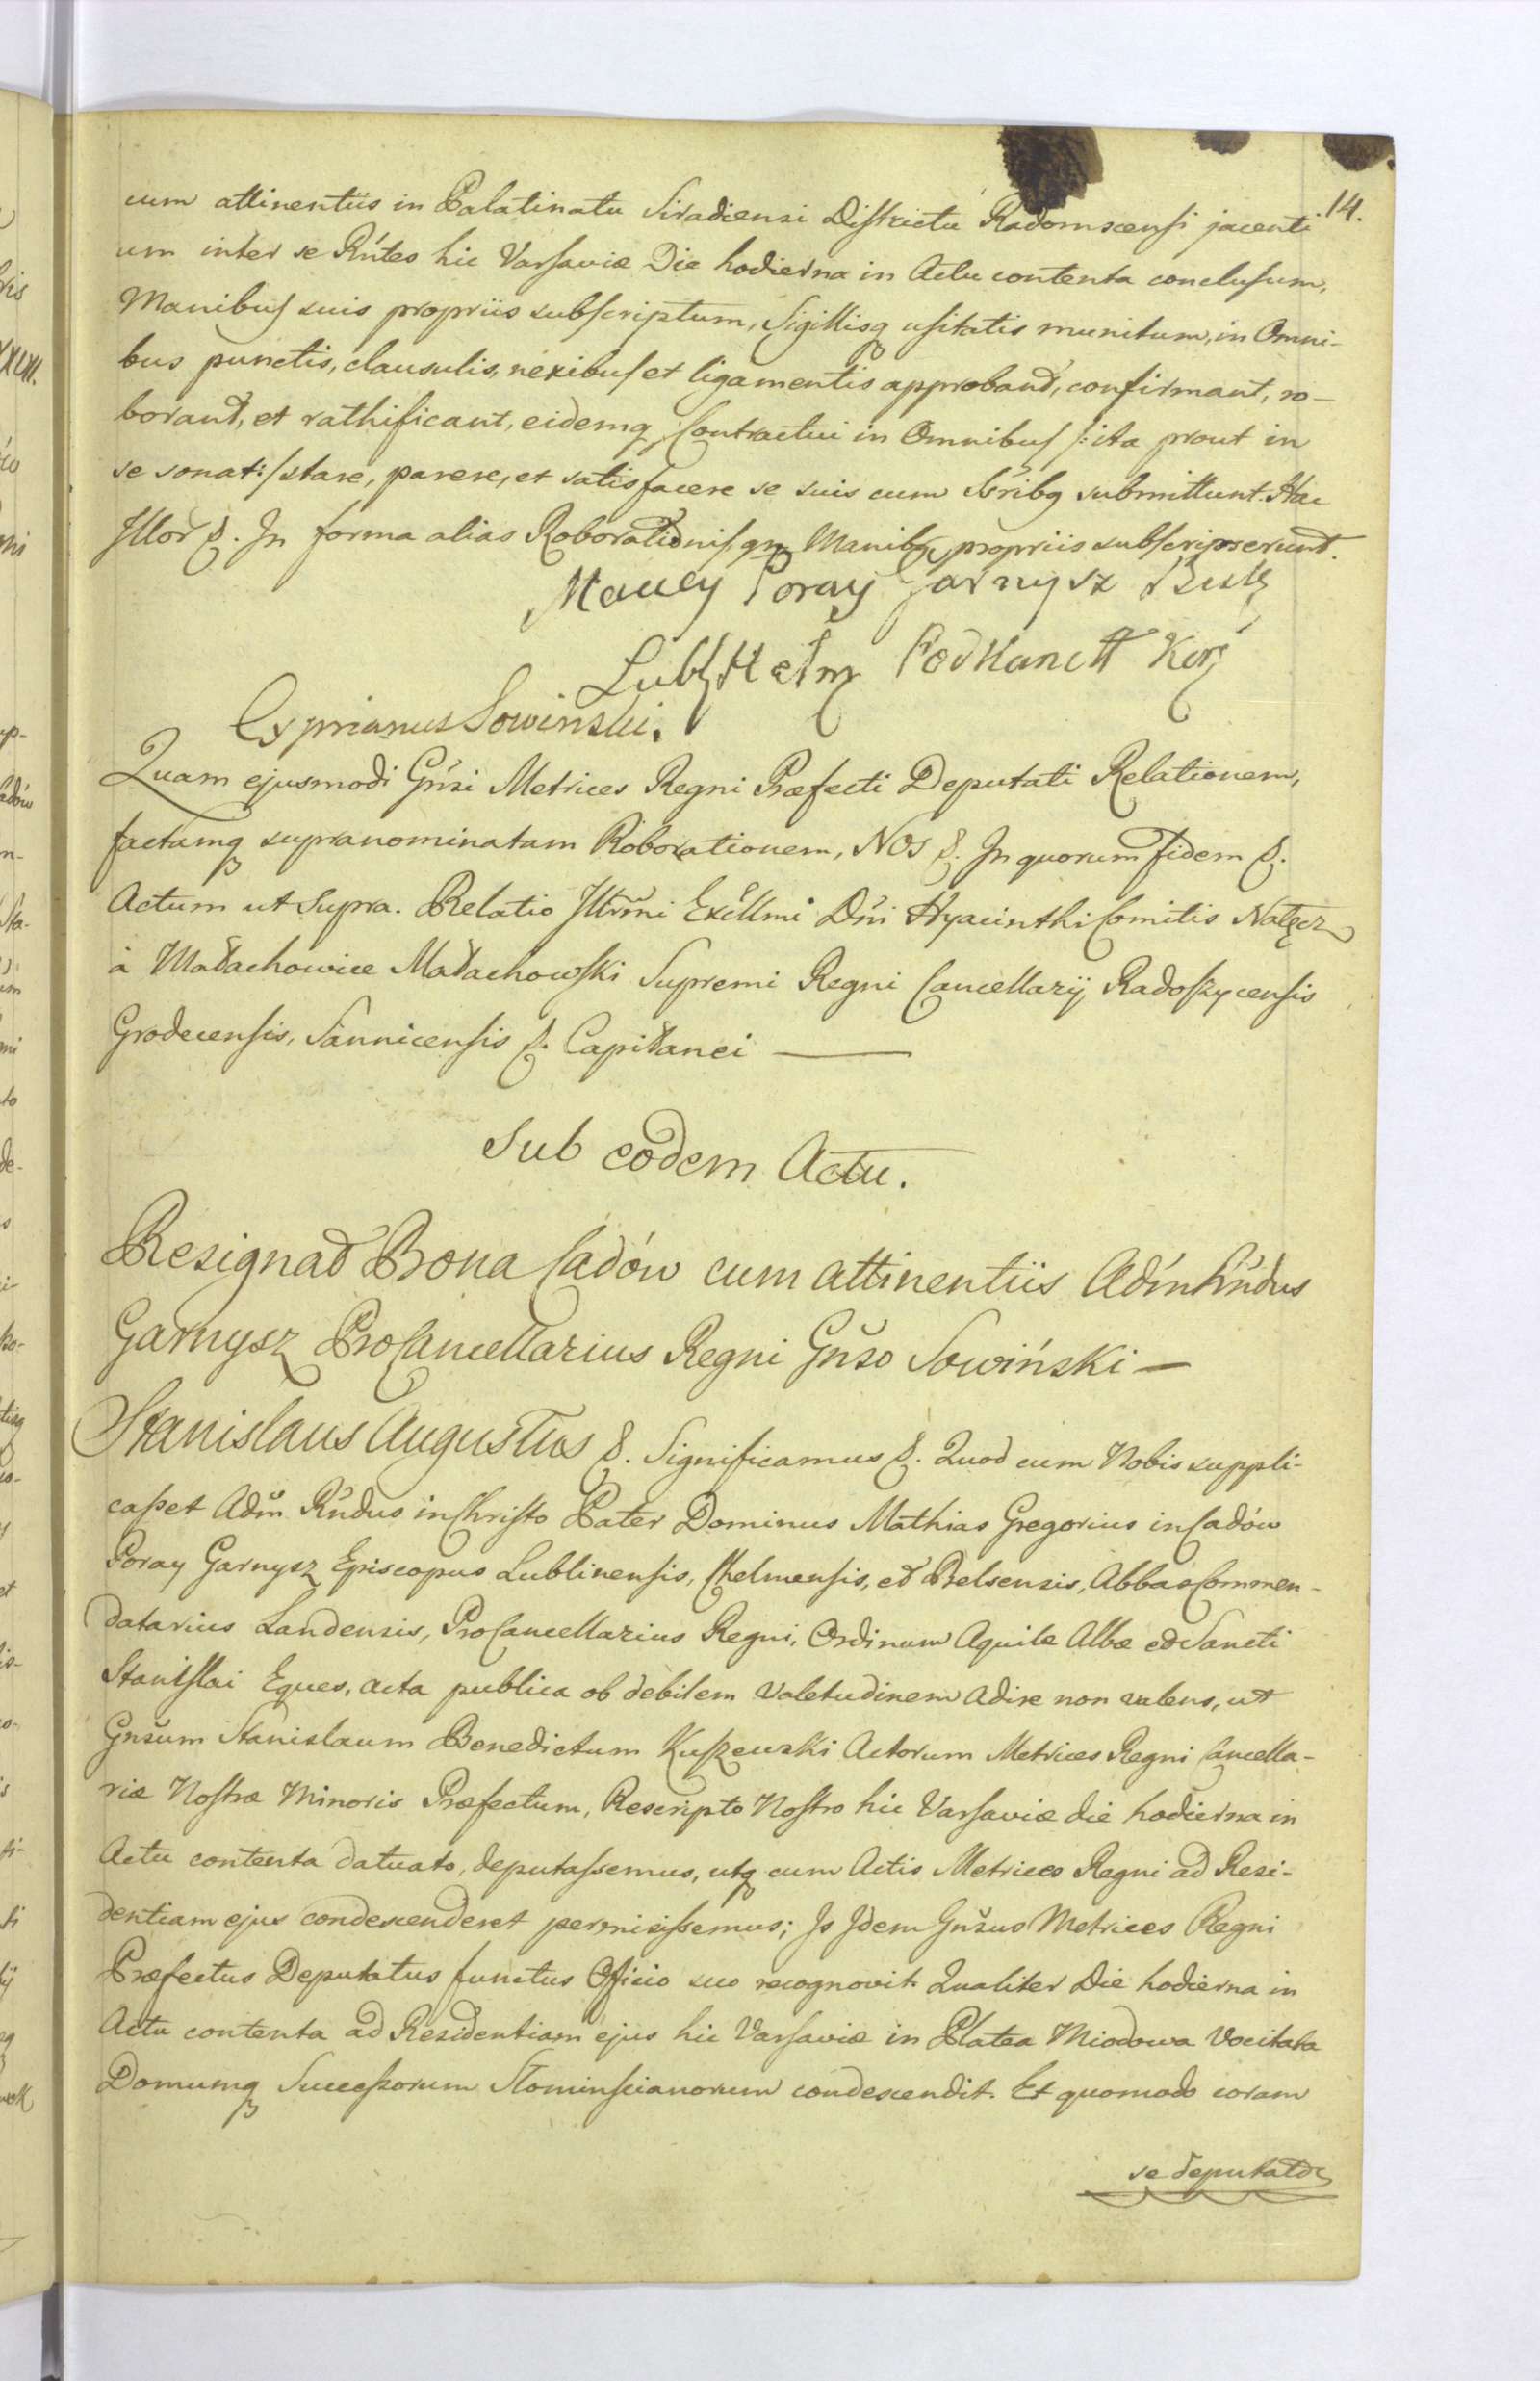 14.
cum attinentiis in Palatinatu Siradiensi Districtu Radomscensi jacenti
um inter se Rńtes hic Varsaviæ Die hodierna in Actu contenta conclusum,
Manibus suis propriis subscriptum, Sigillisq usitatis munitum, in Omni-
bus punctis, clausulis, nexibus et ligamentis approbant, confirmant, ro-
borant, et rathificant, eidemq Contractui in Omnibus /: ita prout in
se sonat :/ stare, parere, et satisfacere se suis cum Sśribq submittunt. Hac
Illor &. In forma alias Roborationis, qn Manibq propriis subscripserunt.
Maciey Poray Garnysz Bisk
Lub Hełm Podkanclł Kor
Cyprianus Sowinski.
Quam ejusmodi Gńsi Metrices Regni Præfecti Deputati Relationem,
factamq supranominatam Roborationem, NOS &. In quorum fidem &.
Actum ut Supra. Relatio Illrm̃i Excell̃mi Dńi Hyacinthi Comitis Nałęcz
à Małachowice Małachowski Supremi Regni Cancellarij Radoszycensis
Grodecensis, Sannicensis &. Capitanei —
Sub eodem Actu.
Resignat Bona Cadów cum attinentiis Adm̃ Rńdus
Garnysz ProCancellarius Regni Gńso Sowiński —
Stanislaus Augustus &. Significamus &. Quod cum Nobis suppli-
casset Adm̃ Rńdus in Christo Pater Dominus Mathias Gregorius in Cadów
Poray Garnysz Episcopus Lublinensis, Chelmensis, et Belsensis, Abbas Commen-
datarius Landensis, ProCancellarius Regni, Ordinum Aquilæ Albæ et Sancti
Stanislai Eques, acta publica ob debilem Valetudinem adire non valens, ut
Gnsum Stanislaum Benedictum Kuszewski Actorum Metrices Regni Cancella-
riæ Nostræ Minoris Præfectum, Rescripto Nostro hic Varsaviæ die hodierna in
Actu contenta datuato, deputassemus, utq cum Actis Metrices Regni ad Resi-
dentiam ejus condescenderet permisissemus; Is Idem Gnsus Metrices Regni
Præfectus Deputatus functus Officio suo recognovit. Qualiter Die hodierna in
Actu contenta ad Residentiam ejus hic Varsaviæ in Platea Miodowa Vocitata
Domumq Successorum Słominscianorum condescendit. Et quomodo coram
se deputato